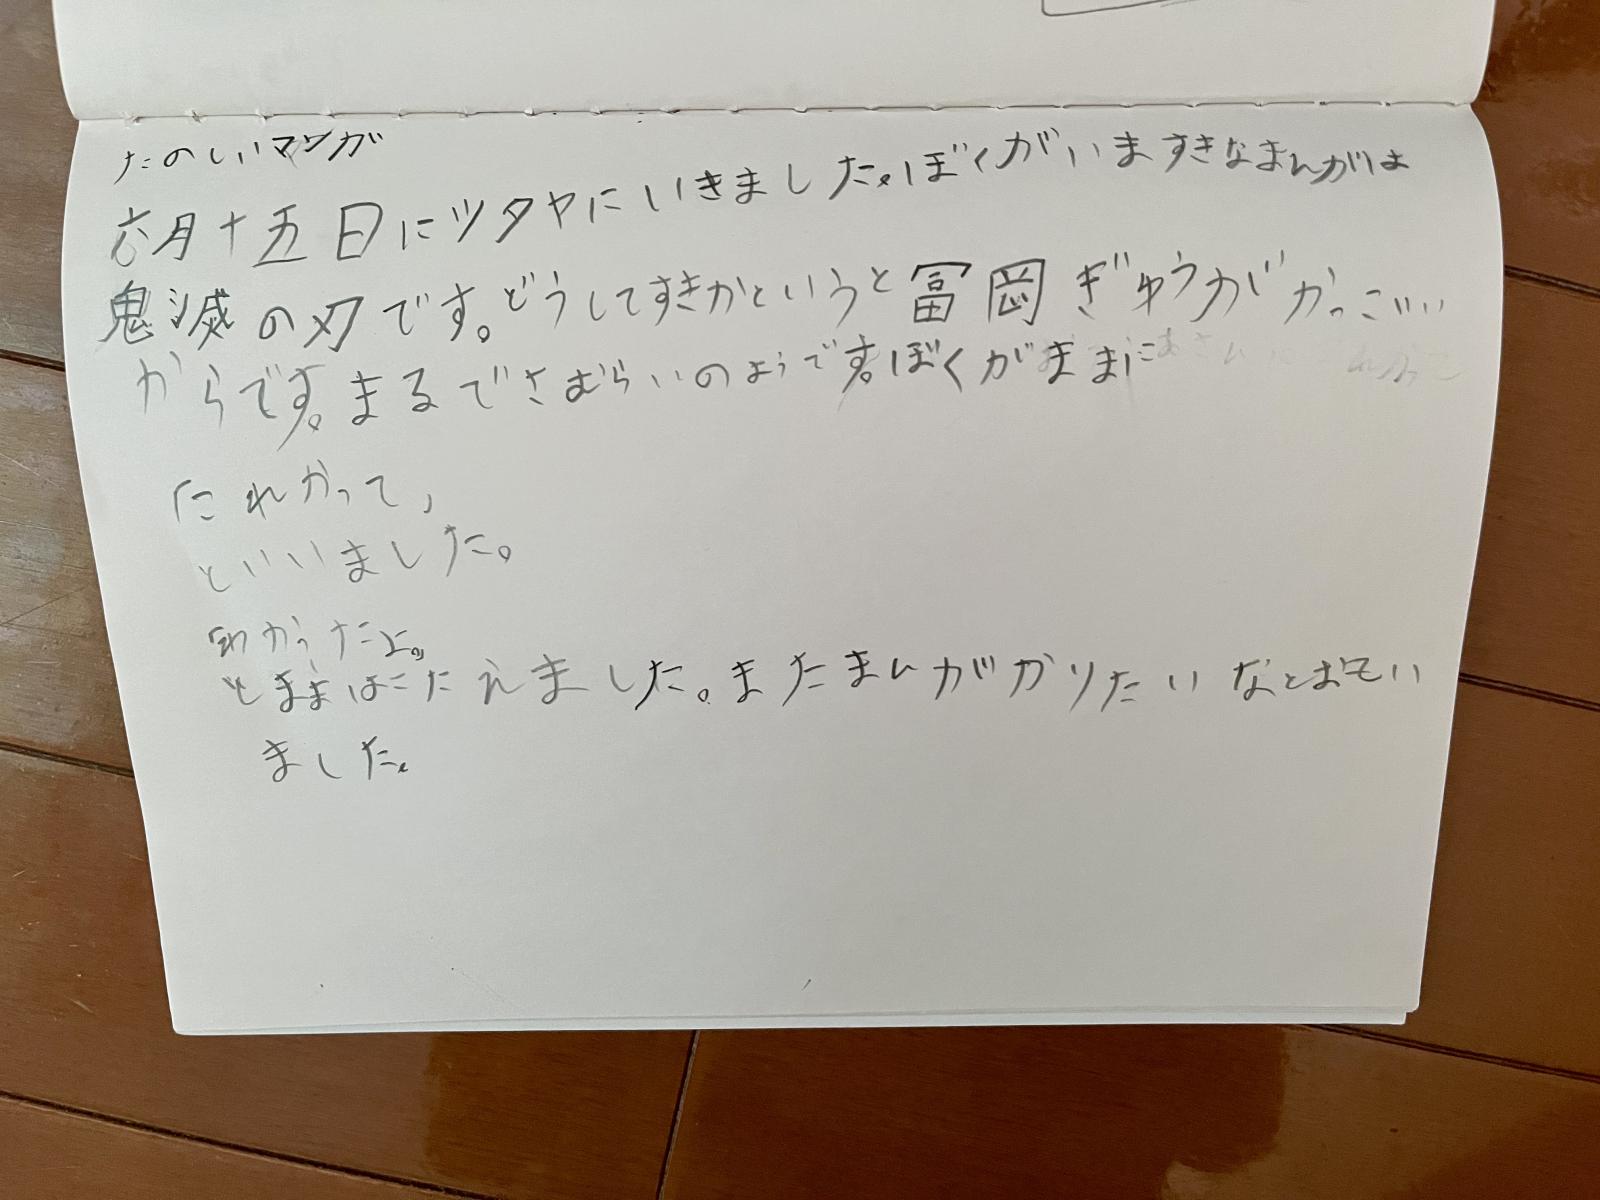 たのしいマンガ
六月十五日にツタヤにいきました。ぼくがいますきなまんがは
鬼滅の刃です。どうしてすきかというと冨岡ぎゆうがかっこいい
からです。まるでさむらいのようです。ぼくがままに
「これかって」
といいました。
「わかったよ。」
とままはこたえました。またまんががかりたいなとおもい
ました。